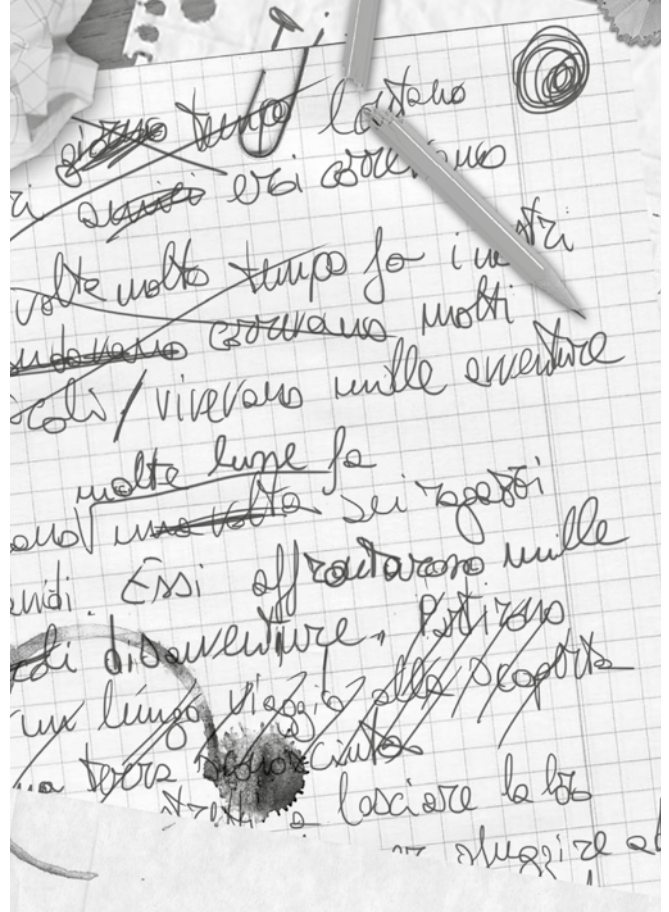 giorno tempo lontano
amici eroi correvano
volte molto tempo fa i nostri
andavano correvano molti
vivevano mille avventure
molte lune fa
una volta sei ragazzi
Essi affrontarono mille
disavventure. Partirono
un lungo viaggio alla scoperta
terra sconosciuta
a lasciare la loro
sfuggire al